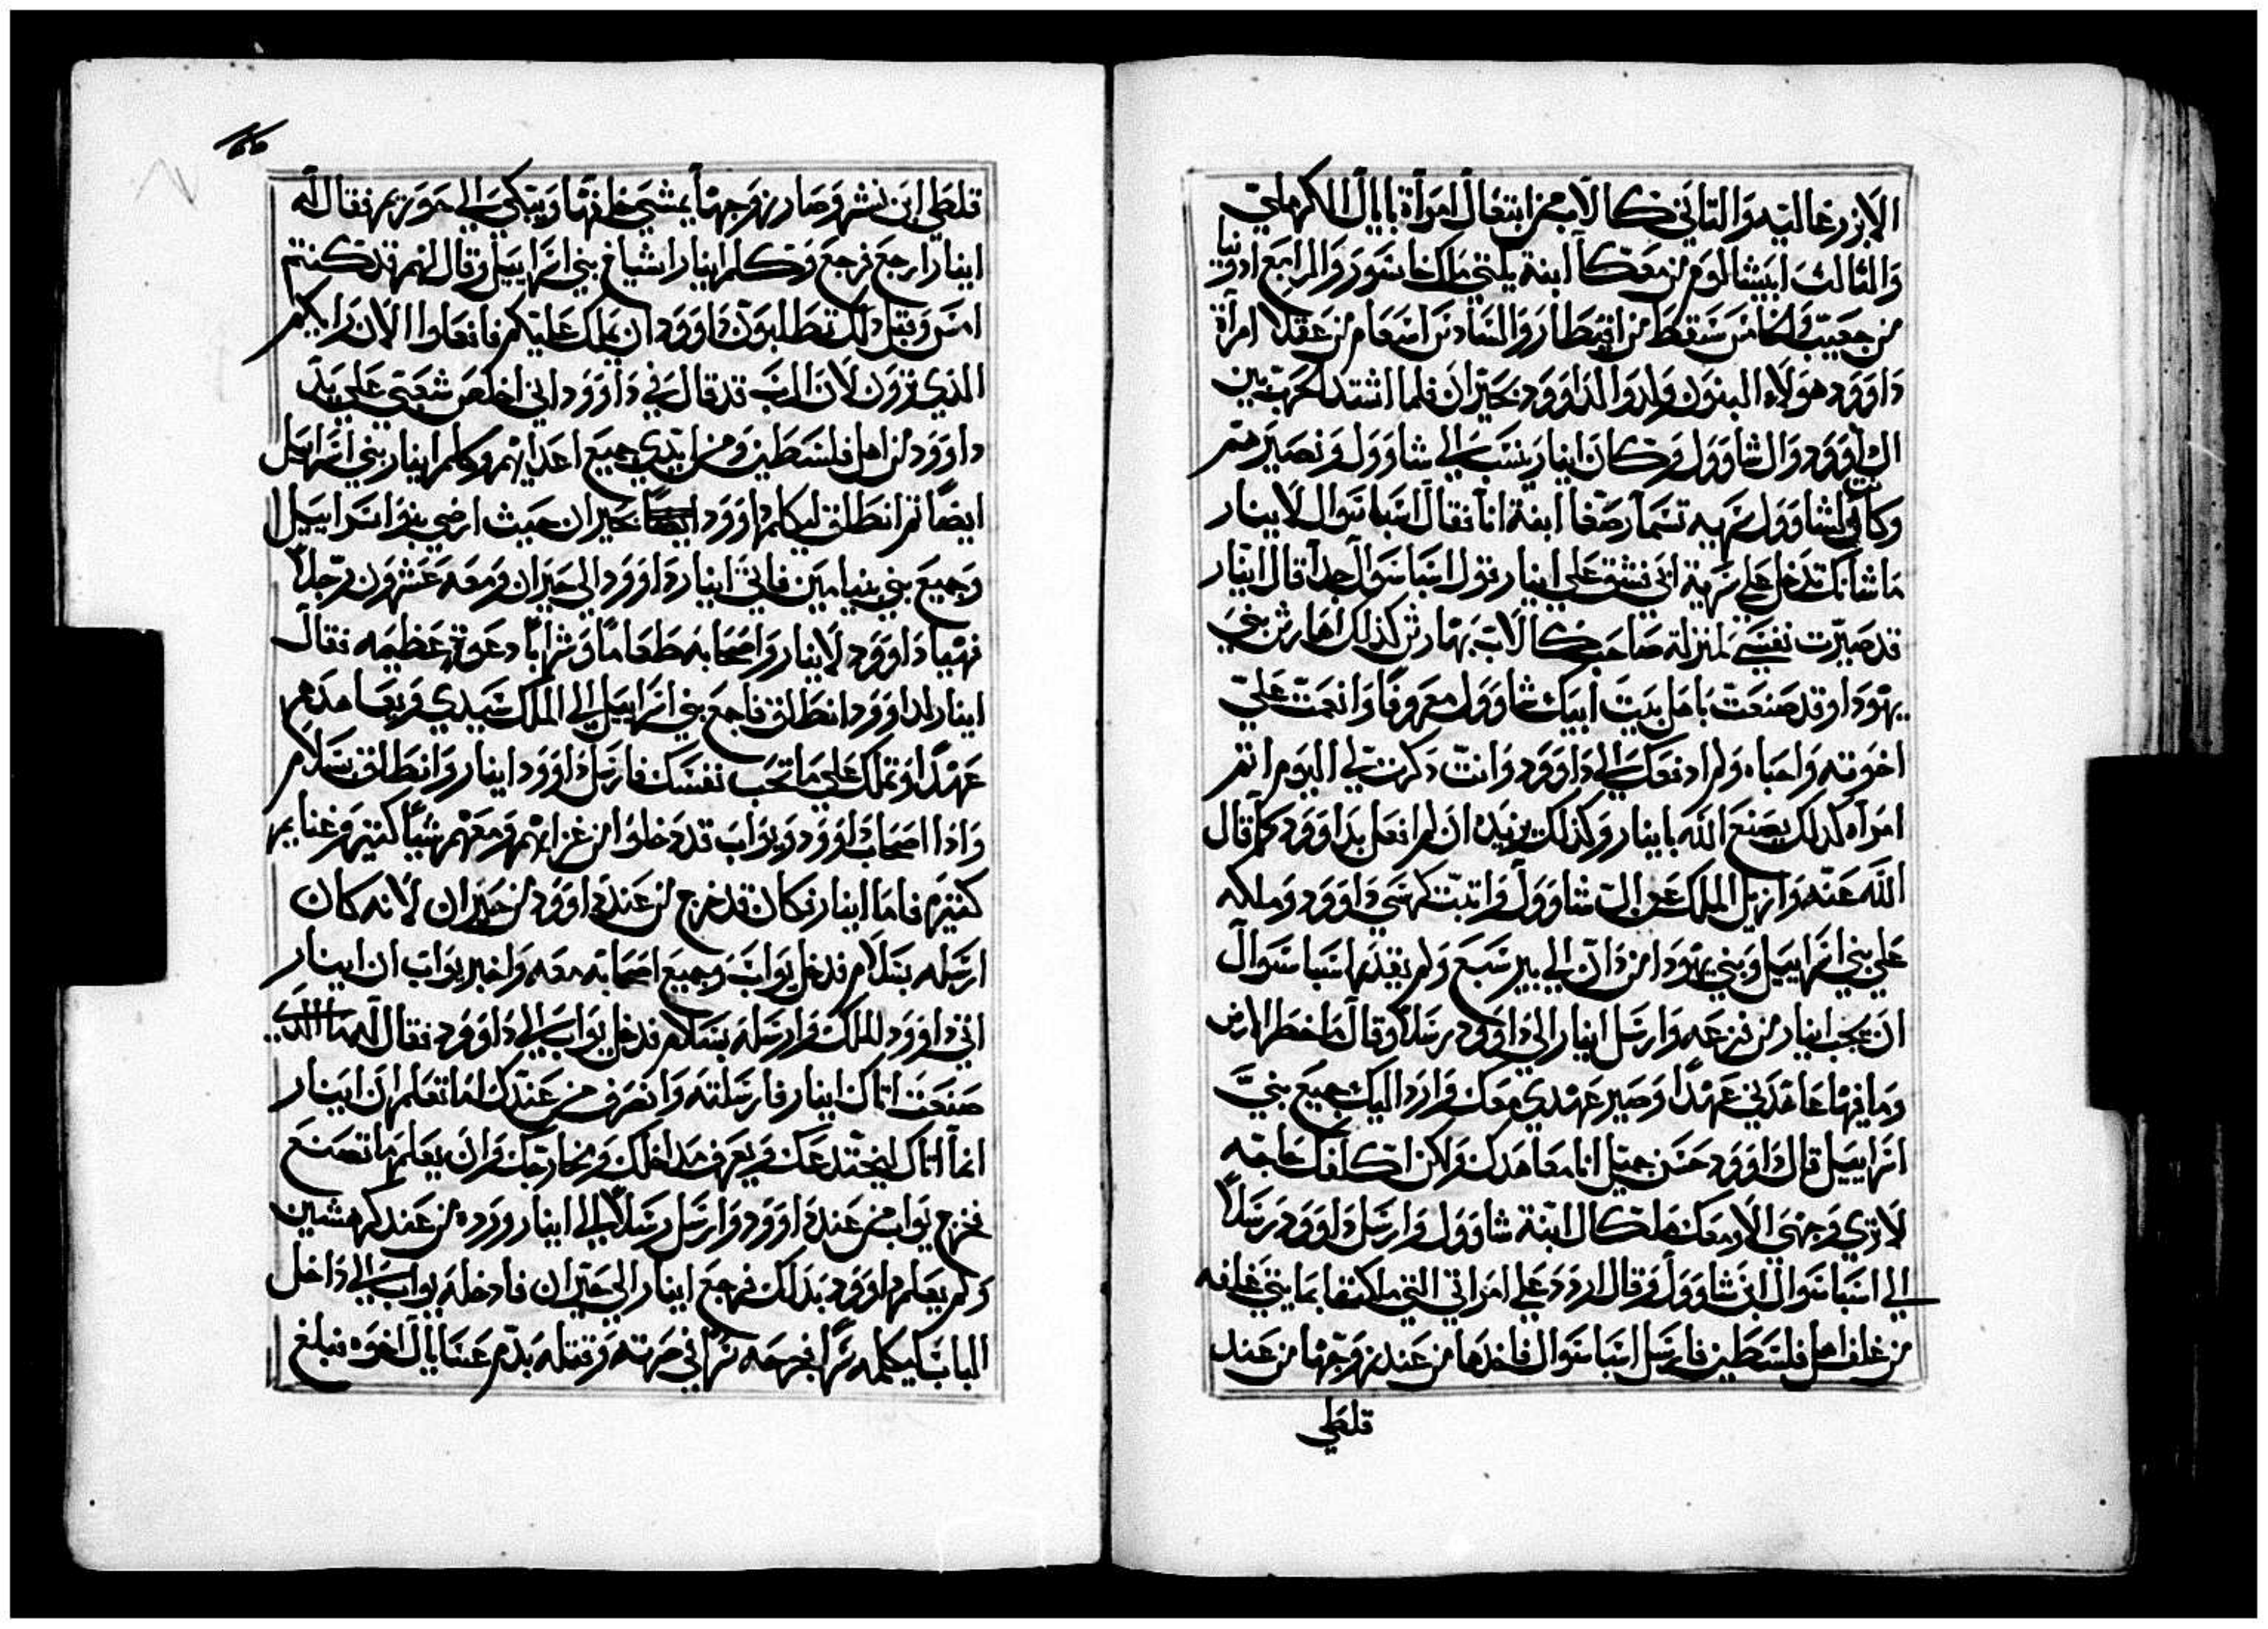 الازرغاليه والثاني كالاب من ابتغال امراة نابال الكرملي
والثالث ابيشالوم من معكا ابنة يلتي ملك خاسور والرابع ادونيا
من جعيب والخامس سقط من اقيطار والسادس اسعام من عقلا امرأة
داوود هولاء البنون ولدوا لداوود بحبران فلما اشتد الحرب بين
ال داوود وال شاوول وكان ابنار ينسب الي شاوول ونصير متم
وكانت لشاوول سريه تسما رصفا ابنة انا فقال اسباسوال لابنار
ما شانك تدخل علي سرية ابي فشق علي ابنار قول اسباسوال جداً قال ابنار
قد صيرت نفسي بمنزلة صاحب كالاب يهارش كذلك اهارش بني
يهودا وقد صنعت باهل بيت ابيك شاوول معروفا وانعمت علي
اخوته واحباه ولم ادفعك الي داوود وانت ذكرت لي اليوم اثم
امراه كذلك يصنع الله بابنار وكذلك يزيده ان لم افعل بداوود كما قال
الله عنه وازيل الملك عن ال شاوول واثبت كرسي داوود وملكه
علي بني اسراييل وبني يهودا من دان الي بير سبع ولم يقدم اسباسوال
ان يجب ابنار من فزعه وارسل ابنار الي داوود رسلاً وقال ما خطر الارض
وما فيها عاهدني عهداً وصير عهدي معك وارد اليك جميع بني
اسراييل قال داوود حسن جميل انا معاهدك ولاكن اكلفك حاجه
لا تري وجهي الا ومعك ملكال ابنة شاوول وارسل داوود رسلاً
الي اسباسوال ابن شاوول وقال اردد علي امراتي التي ملكتها بمايتي غلفه
من غلف اهل فلسطين فارسل اسباسوال فاخدها من عند زوجها من عند
قلطي
قلطي ابن نشر وصار زوجها يمشي خلفها ويبكي الي حوريم فقال له
ابنار ارجع فرجع وكلم ابنار اشياخ بني اسراييل وقال لهم قد كنتم
امس وقبل ذلك تطلبون داوود ان يملك عليكم فافعلوا الان رايكم
الذي ترون لان الرب قد قال في داوود اني اخلص شعبي علي يد
داوود من اهل فلسطين ومن ايدي جميع اعدايهم وكلم ابنار بني اسراييل
ايضاً ثم انطلق ليكلم داوود ايضاً بحبران حيث ارضي بنو اسراييل
وجميع بني بنيامين فاتي ابنار داوود الي حبران ومعه عشرون رجلاً
فهيا داوود لابنار واصحابه طعاماً وشراباً دعوة عظيمه فقال
ابنار لداوود انطلق فاجمع بني اسراييل الي الملك سيدي ويعاهدهم
عهداً وتملك علي ما تحب نفسك فارسل داوود ابنار وانطلق بسلام
واذا اصحاب داوود ويواب قد دخلوا من غزاتهم ومعهم شياً كثير وغنايم
كثيره فاما ابنار فكان قد خرج من عند داوود من حبران لانه كان
ارسله بسلام فدخل يواب وجميع اصحابه معه واخبر يواب ان ابنار
اتي داوود الملك وارسله بسلام فدخل يواب الي داوود فقال له ما الذي
صنعت اتاك ابنار فارسلته وانصرف من عندك اما تعلم ان ابنار
انما اتاك ليختدعك ويعرف مداخلك ومخارجك وان يعلم ما تصنع
فخرج يواب من عند داوود وارسل رسلاً الي ابنار وردوه من عند كرهشين
ولم يعلم داوود بذلك فرجع ابنار الي حبران فادخله يواب الي داخل
الباب ليكلمه سراً فجرحه سراً في صرته وقتله بدم عسايال اخوه فبلغ